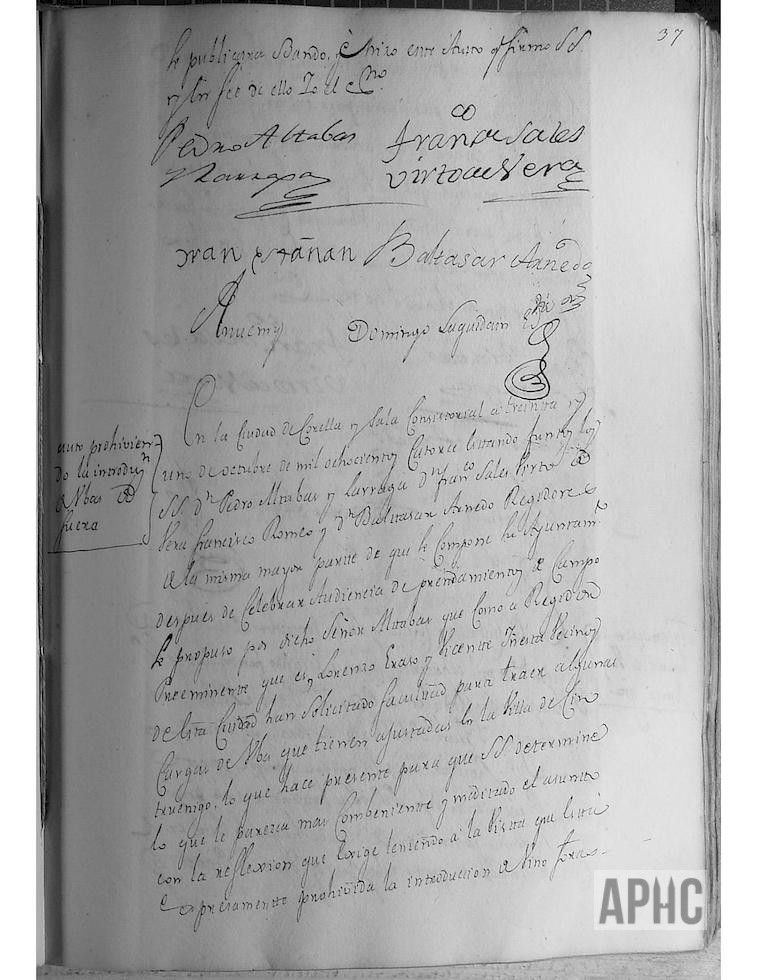 37
se publicara Bando, è hizo este Auto q firmo SS
y en fee de ello Yo el Sno
Pedro Altabas
Franco de Sales
Navarra
Virto de Vera
Juan Estañan Baltasar Arnedo
Ante mi Domingo Luquidain
auto prohivien
do la introduyn
de Vbas de
fuera
En la Ciudad de Corella y Sala Consistorial a treinta y
uno de octubre de mil ochocientos Catorce estando Juntos los
SS. Dn Pedro Altabas y Larraga Dn franco Sales Virto de
Vera francisco Romeo y Dn Baltasar Arnedo Regidores
de la misma mayor parte de que se Compone su Ayuntamto
despues de Celebrar Audiencia de prendamientos de Campo
Se propuso por dicho Señor Altabas que como a Regidor
Preeminente que es, Lorenzo Eraso y Vicente Vecinos
de esta Ciudad han Solicitado facultad para traer algunas
Cargas de Vba que tienen ajustadas en la Villa de Cin
truenigo, lo que hace presente para que SS determine
lo que le parezca mas Combeniente y meditado el asunto
con la reflexion que exige teniendo a la Vista que está
expresamente prohivida la introduccion de Vino foras-
APHC